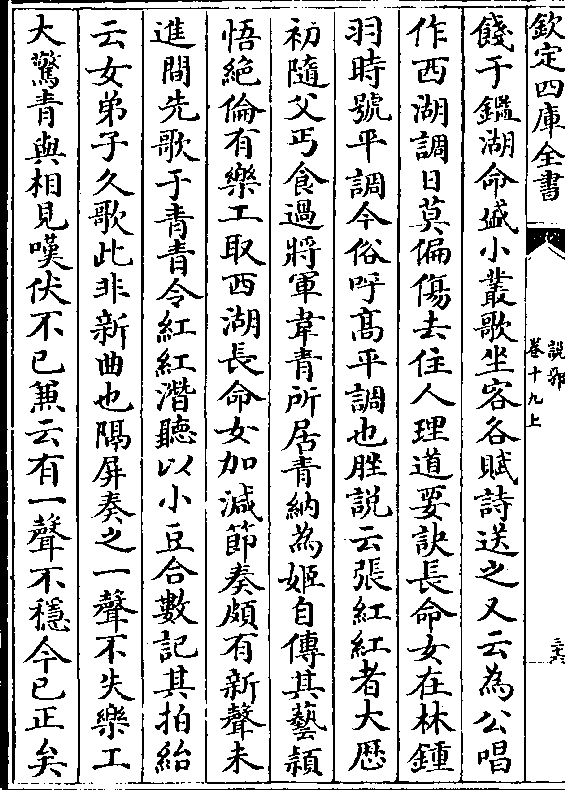 欽定四庫全書
說郛
卷十九上
三六
餞于鑑湖命盛小叢歌坐客各賦詩送之又云為公唱
作西湖調日莫偏傷去住人理道要訣長命女在林鍾
羽時號平調今俗呼髙平調也脞說云張紅紅者大歴
初隨父丐食過將軍韋青所居青納為姬自傳其藝頴
悟絶倫有樂工取西湖長命女加減節奏頗有新聲未
進間先歌于青青令紅紅潛聽以小豆合數記其拍紿
云女弟子久歌此非新曲也隔屏奏之一聲不失樂工
大驚青與相見嘆伏不已兼云有一聲不穩今已正矣